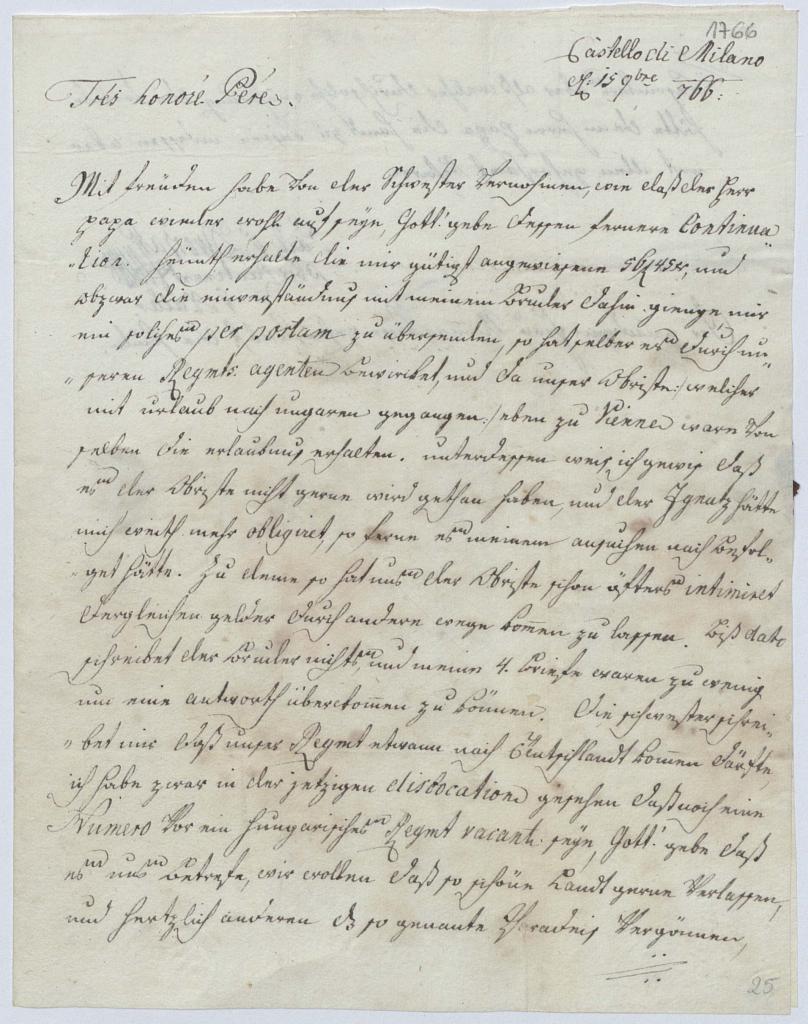 1766
Castello di Milano
d. 15 9bre 766:
Trés honoré Pére.
Mit freüden habe von der Schwester vernohmen, wie daß der Herr
papa wieder wohl auf seye, Gott! gebe dessen fernere Continua
tion. heünth erhalte die mir gütigst angewiesene 56 f 45 x, und
obzwar die einverständnus mit meinem Bruder dahin gienge mir
ein solches per postam zu übersenden, so hat selber es durch un„
„seren Regmts: agenten bewircket, und da unser Obriste :/welcher
mit urlaub nach ungaren gegangen:/ eben zu Vienne ware von
selben die erlaubnus erhalten. unterdessen weis ich gewis daß
es der Obriste nicht gerne wird gethan haben, und der Ignatz hätte
mich weith mehr obligiret, so ferne es meinem ansuchen nach befol„
„get hätte. Zu deme so hat uns der Obriste schon öfters intimiret
dergleichen gelder durch andere wege komen zu lassen. Biß dato
schreibet der Bruder nichts, und meine 4. Briefe waren zu wenig
um eine antworth überkomen zu können. Die schwester schrei„
„bet mir daß unser Regmt etwann nach Teutschlandt komen dürfte,
ich habe zwar in der jetzigen dislocation gesehen daß noch eine
Numero vor ein hungarisches Regmt vacant: seye, Gott! gebe daß
es uns betrefe, wir wollen daß so schöne Landt gerne verlassen,
und hertzlich anderen das so genante Paradeis vergönnen,
25